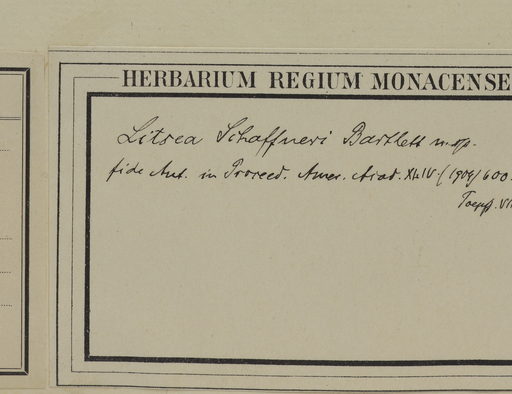 HERBARIUM REGIUM MONACENSE
Litsea Schaffneri Bartlett n. sp.
fide Aut. in Proceed. Amer. Acad. XLIV (1909) 600.